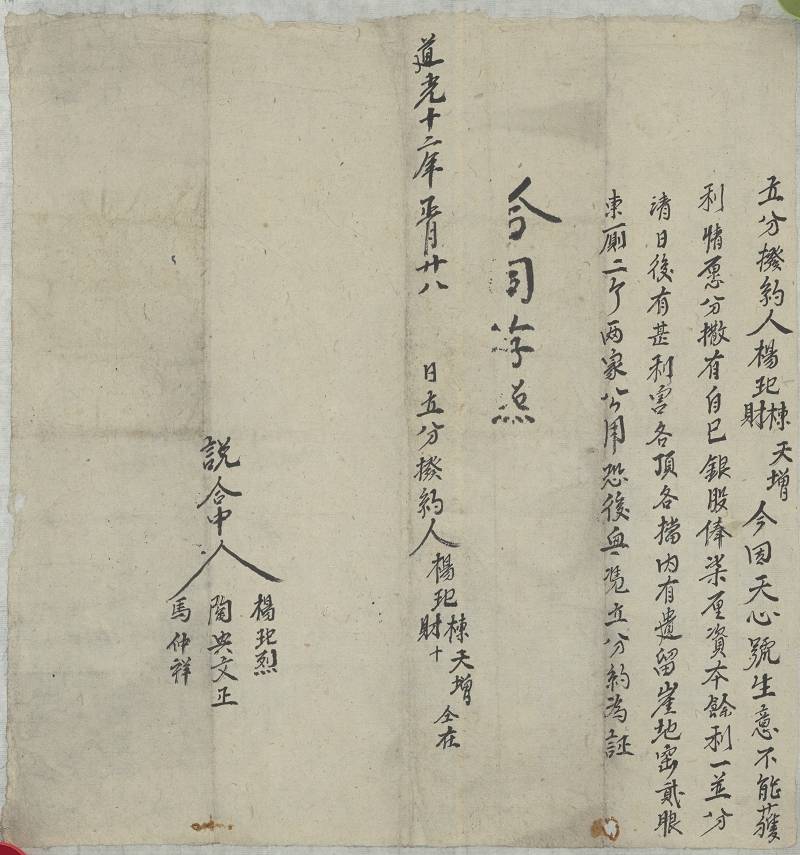 立分撥約人楊玘棟財天增今因天心號生意不能獲
利情愿分撒有自己銀股俸柒厘資本餘利一並分
清日後有甚利害各頂各擋内有遺留崖地窑貳眼
東厠二个两家公用恐後無凴立分約為証
合同存照
道光十二年正月廿八日立分撥約人楊玘棟財十天增仝在
說合中人
楊玘烈
閻典文正
馬仲祥